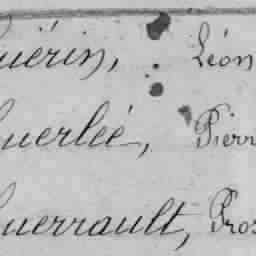 uérin, Léon
uerlée, Pierr
uerrault, Pros